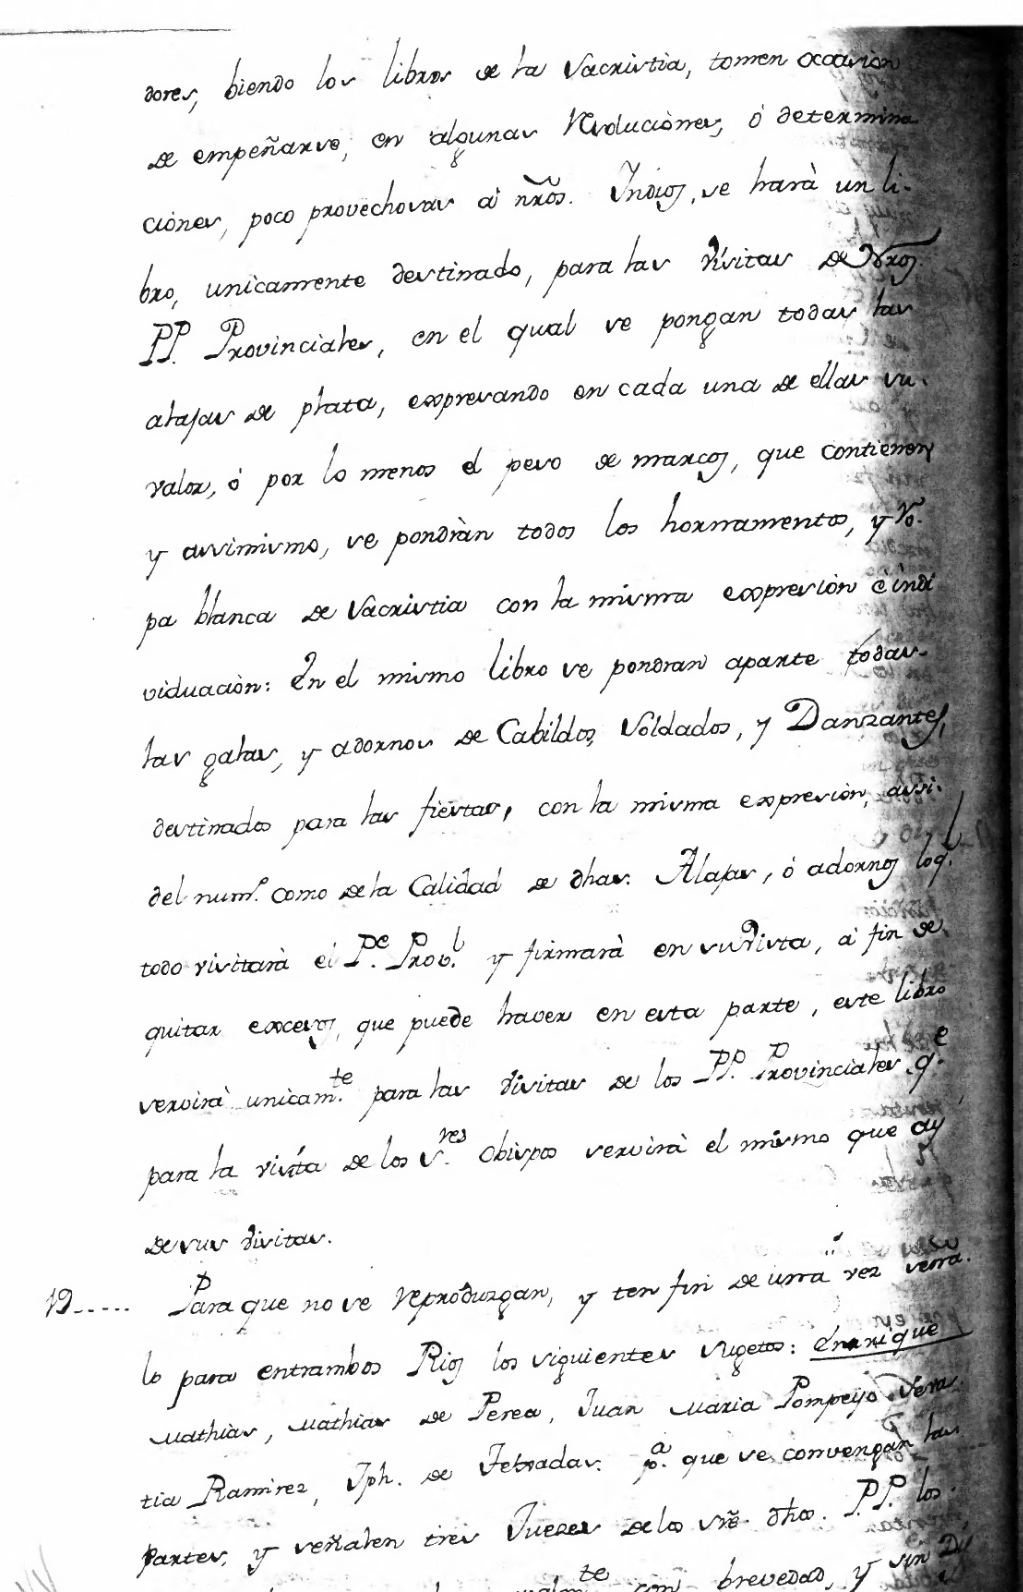 dores, biendo los libros de la Sacristia, tomen occasion
de empeñarse, en algunas Resoluciònes, ó determina
ciònes, poco provechosas à nr̃os. Indios, se harà un li-
bro, unicamente destinado, para las Visitas de Nr̃os
PP. Provinciales, en el qual se pongan todas las
alajas de plata, expresando en cada una de ellas su
valor, ò por lo menos el peso de marcos, que contienen,
y assimismo, se pondràn todos los hornamentos, y Ro-
pa blanca de Sacristia con la misma expresiòn è indi
viduaciòn: En el mismo libro se pondran aparte todas
las galas, y adornos de Cabildos, Soldados, y Danzantes,
destinados para las fiestas, con la misma expresiòn, assi
del num.º como de la Calidad de dhas. Alajas, ó adornos loq.
todo visitarà el P.e Prov.l y firmarà en su Visita, à fin de
quitar excesos, que puede haver en esta parte, este libro
servirà unicam.te para las Visitas de los PP. Provinciales q.e
para la visita de los S.res Obispos servirà el mismo que ay
de sus Visitas.
19..... Para que no se reproduzgan, y ten fin de una vez
lo para entrambos Rios los siguientes sugetos: Enrrique
Mathias, Mathias de Perea, Juan Maria Pompeyo
tia Ramirez, Jph. de Tebradas. p.a que se convengan las
partes, y señalen tres Juezes de los dhos. PP. los
con brevedad, y sin